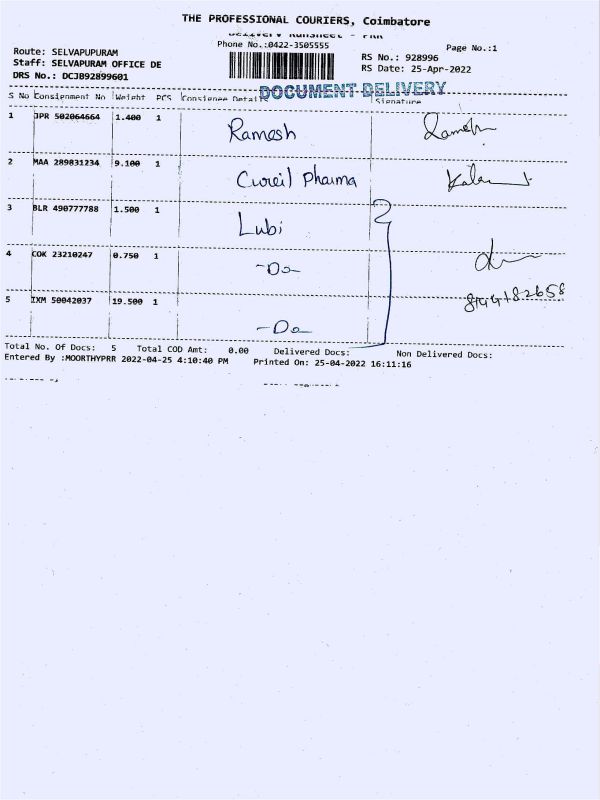 THE PROFESSIONAL COURIERS, Coimbatore
Delivery Runsheet - PRR
Phone No.:0422-3505555
Page No.:1
Route: SELVAPUPURAM
Staff: SELVAPURAM OFFICE DE
DRS No.: DCJB92899601
RS No.: 928996
RS Date: 25-Apr-2022
DOCUMENT DELIVERY
S No Consignment No Weight PCS Consignee Details Signature
1 JPR 502064664 1.400 1 Ramesh
2 MAA 289831234 9.100 1 Cureil Pharma
3 BLR 490777788 1.500 1 Lubi
4 COK 23210247 0.750 1 -Do-
5 IXM 50042037 19.500 1 -Do-
Total No. Of Docs: 5 Total COD Amt: 0.00 Delivered Docs: Non Delivered Docs:
Entered By :MOORTHYPRR 2022-04-25 4:10:40 PM Printed On: 25-04-2022 16:11:16